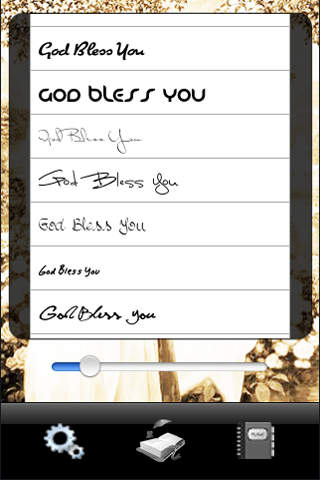 God Bless You
GOD BLESS YOU
God Bless You
God Bless You
God Bless You
God Bless You
God Bless you